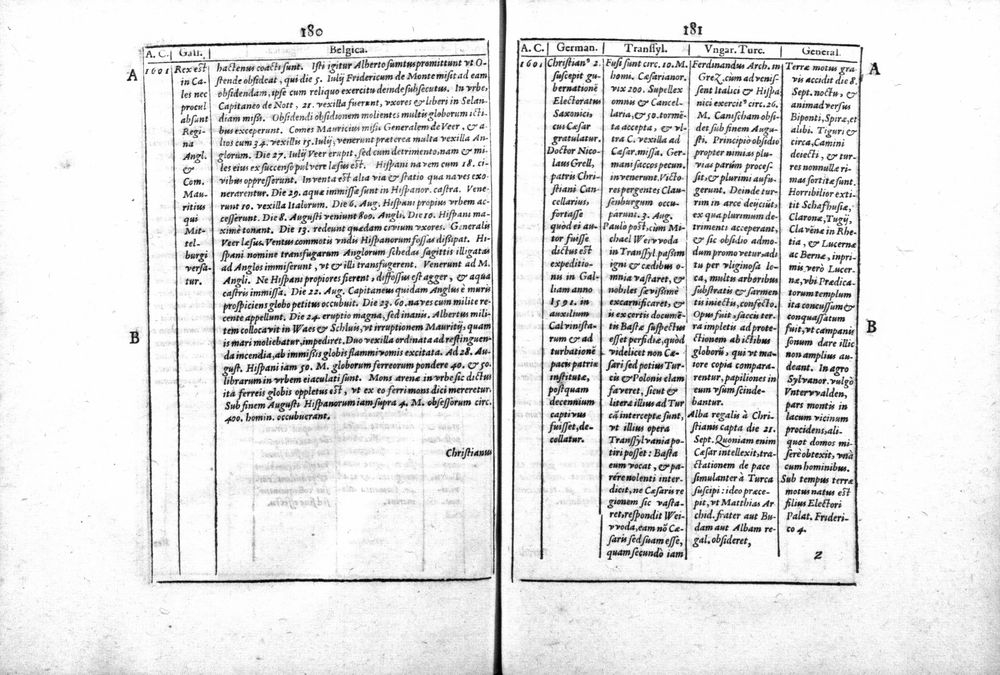 180
A. C.
Gall.
Belgica.
A
1601
Rex est
in Ca-
les nec
procul
absunt
Regi-
na
Angl.
&
Com.
Mau-
ritius
qui
Mit-
tel-
burgi
versa-
tur.
B
hactenus coacti sunt. Isti igitur Alberto sumtus promittunt vt O-
stende obsideat, qui die 5. Iulij Fridericum de Monte misit ad eam
obsidendam, ipse cum reliquo exercitu deinde subsecutus. In vrbe,
Capitaneo de Nott, 21. vexilla fuerunt, vxores & liberi in Selan-
diam misis. Obsidendi obsidionem molientes multis globorum icti-
bus exceperunt. Comes Mauricius misis Generalem de Veer, & a-
lios cum 34. vexillis 15. Iulij, venerunt præterea multa vexilla An-
glorum. Die 27. Iulij Veer erupit, sed cum detrimento, nam & mi-
les eius ex succenso pulvere læsus est. Hispani navem cum 18. ci-
vibus oppresserunt. Inventa est alia via & statio qua naves exo-
nerarentur. Die 29. aquæ immissæ sunt in Hispanor. castra. Vene-
runt 10. vexilla Italorum. Die 6. Aug. Hispani propius vrbem ac-
cesserunt. Die 8. Augusti veniunt 800. Angli. Die 10. Hispani ma-
ximè tonant. Die 13. redeunt quædam civium vxores. Generalis
Veer læsus. Ventus commotis vndis Hispanorum fossas dissipat. Hi-
spani nomine transfugarum Anglorum schedas sagittis illigatas
ad Anglos immiserunt, vt & illi transfugerent. Venerunt ad M.
Angli. Ne Hispani propiores fierent, diffossus est agger, & aqua
castris immissa. Die 22. Aug. Capitaneus quidam Anglus è muris
prospiciens globo petitus occubuit. Die 23. 60. naves cum milite re-
cente appellunt. Die 24. eruptio magna, sed inanis. Albertus mili-
tem collocavit in Waes & Schluis, vt irruptionem Mauritij, quam
is mari moliebatur, impediret. Duo vexilla ordinata ad restinguen-
da incendia, ab immissis globis flammivomis excitata. Ad 28. Au-
gust. Hispani iam 50. M. globorum ferreorum pondere 40. & 50.
librarum in vrbem eiaculati sunt. Mons arenæ in vrbe sic dictus
ita ferreis globis oppletus est, vt ex eo ferri mons dici mereretur.
Sub finem Augusti Hispanorum iam supra 4. M. obsessorum circ.
400. homin. occubuerunt.
Christianus
181
A. C.
German.
Transsyl.
Vngar. Turc.
General.
1601
Christian⁹ 2.
suscepit gu-
bernationē
Electoratus
Saxonici,
cui Cæsar
gratulatur.
Doctor Nico-
laus Grell,
patris Chri-
stiani Can-
cellarius,
fortasse
quòd ei au-
tor fuisse
dictus est
expeditio-
nis in Gal-
liam anno
1591. in
auxilium
Calvinista-
rum & ad
turbationē
pacis patriæ
institutæ,
postquam
decennium
captivus
fuisset, de-
collatur.
Fusi sunt circ. 10. M.
homi. Cæsarianor.
vix 200. Supellex
omnis & Cancel-
laria, & 50. tormē
ta accepta, & vl-
tra C. vexilla ad
Cæsar. missa. Ger-
mani saccos pecun.
invenerunt. Victo-
res pergentes Clau-
senburgum occu-
parunt. 3. Aug.
Paulo post, cùm Mi-
chael Weivvoda
in Transsyl. passim
igni & cædibus o-
mnia vastaret, &
nobiles sævissimè
excarnificaret, &
is ex certis documē-
tis Bastæ suspectus
esset perfidiæ, quòd
videlicet non Cæ-
sari sed potius Tur-
cis & Polonis elam
faveret, sicut &
literæ illius ad Tur
cā interceptæ sunt,
vt illius opera
Transsylvania po-
tiri posset: Basta
eum vocat, & pa-
rére nolenti inter-
dicit, ne Cæsaris re
gionem sic vasta-
ret, respondit Wei-
vvoda, eam nō Cæ-
saris sed suam esse,
quam secundò iam
Ferdinandus Arch. in
Gretz, cum advenis-
sent Italici & Hispa
nici exercit⁹ circ. 26.
M. Canischam obsi-
det sub finem Augu-
sti. Principio obsidio
propter nimias plu-
vias parùm proces-
sit, & plurimi aufu-
gerunt. Deinde tur-
rim in arce dejiciūt,
ex qua plurimum de-
trimenti acceperant,
& sic obsidio admo-
dum promovetur, adi-
tu per vliginosa lo-
ca, multis arboribus
substratis & sarmen-
tis iniectis, confecto.
Opus fuit, saccis ter-
ra impletis ad prote-
ctionem ab ictibus
globorū, qui vt ma-
iore copia compara-
rentur, papiliones in
eum vsum scinde-
bantur.
Alba regalis à Chri-
stianis capta die 21.
Sept. Quoniam enim
Cæsar intellexit, tra-
ctationem de pace
simulanter à Turca
suscipi: ideo præce-
pit, vt Matthias Ar
chid. frater aut Bu-
dam aut Albam re-
gal. obsideret,
Terræ motus gra-
vis accidit die 8.
Sept. noctu, &
animadversus
Biponti, Spiræ, et
alibi. Tiguri &
circa, Camini
deiecti, & tur-
res nonnullæ ri-
mas sortitæ sunt.
Horribilior exti-
tit Schafhusiæ,
Claronæ, Tugij,
Clavenæ in Rhe-
tia, & Lucernæ
ac Bernæ, inpri-
mis verò Lucer-
næ, vbi Prædica-
torum templum
ita concussum &
conquassatum
fuit, vt campanæ
sonum dare illic
non amplius au-
deant. In agro
Sylvanor. vulgò
Vntervvalden,
pars montis in
lacum vicinum
procidens, ali-
quot domos mi-
serè obtexit, vnà
cum hominibus.
Sub tempus terræ
motus natus est
filius Electori
Palat. Frideri-
co 4.
Z
A
B